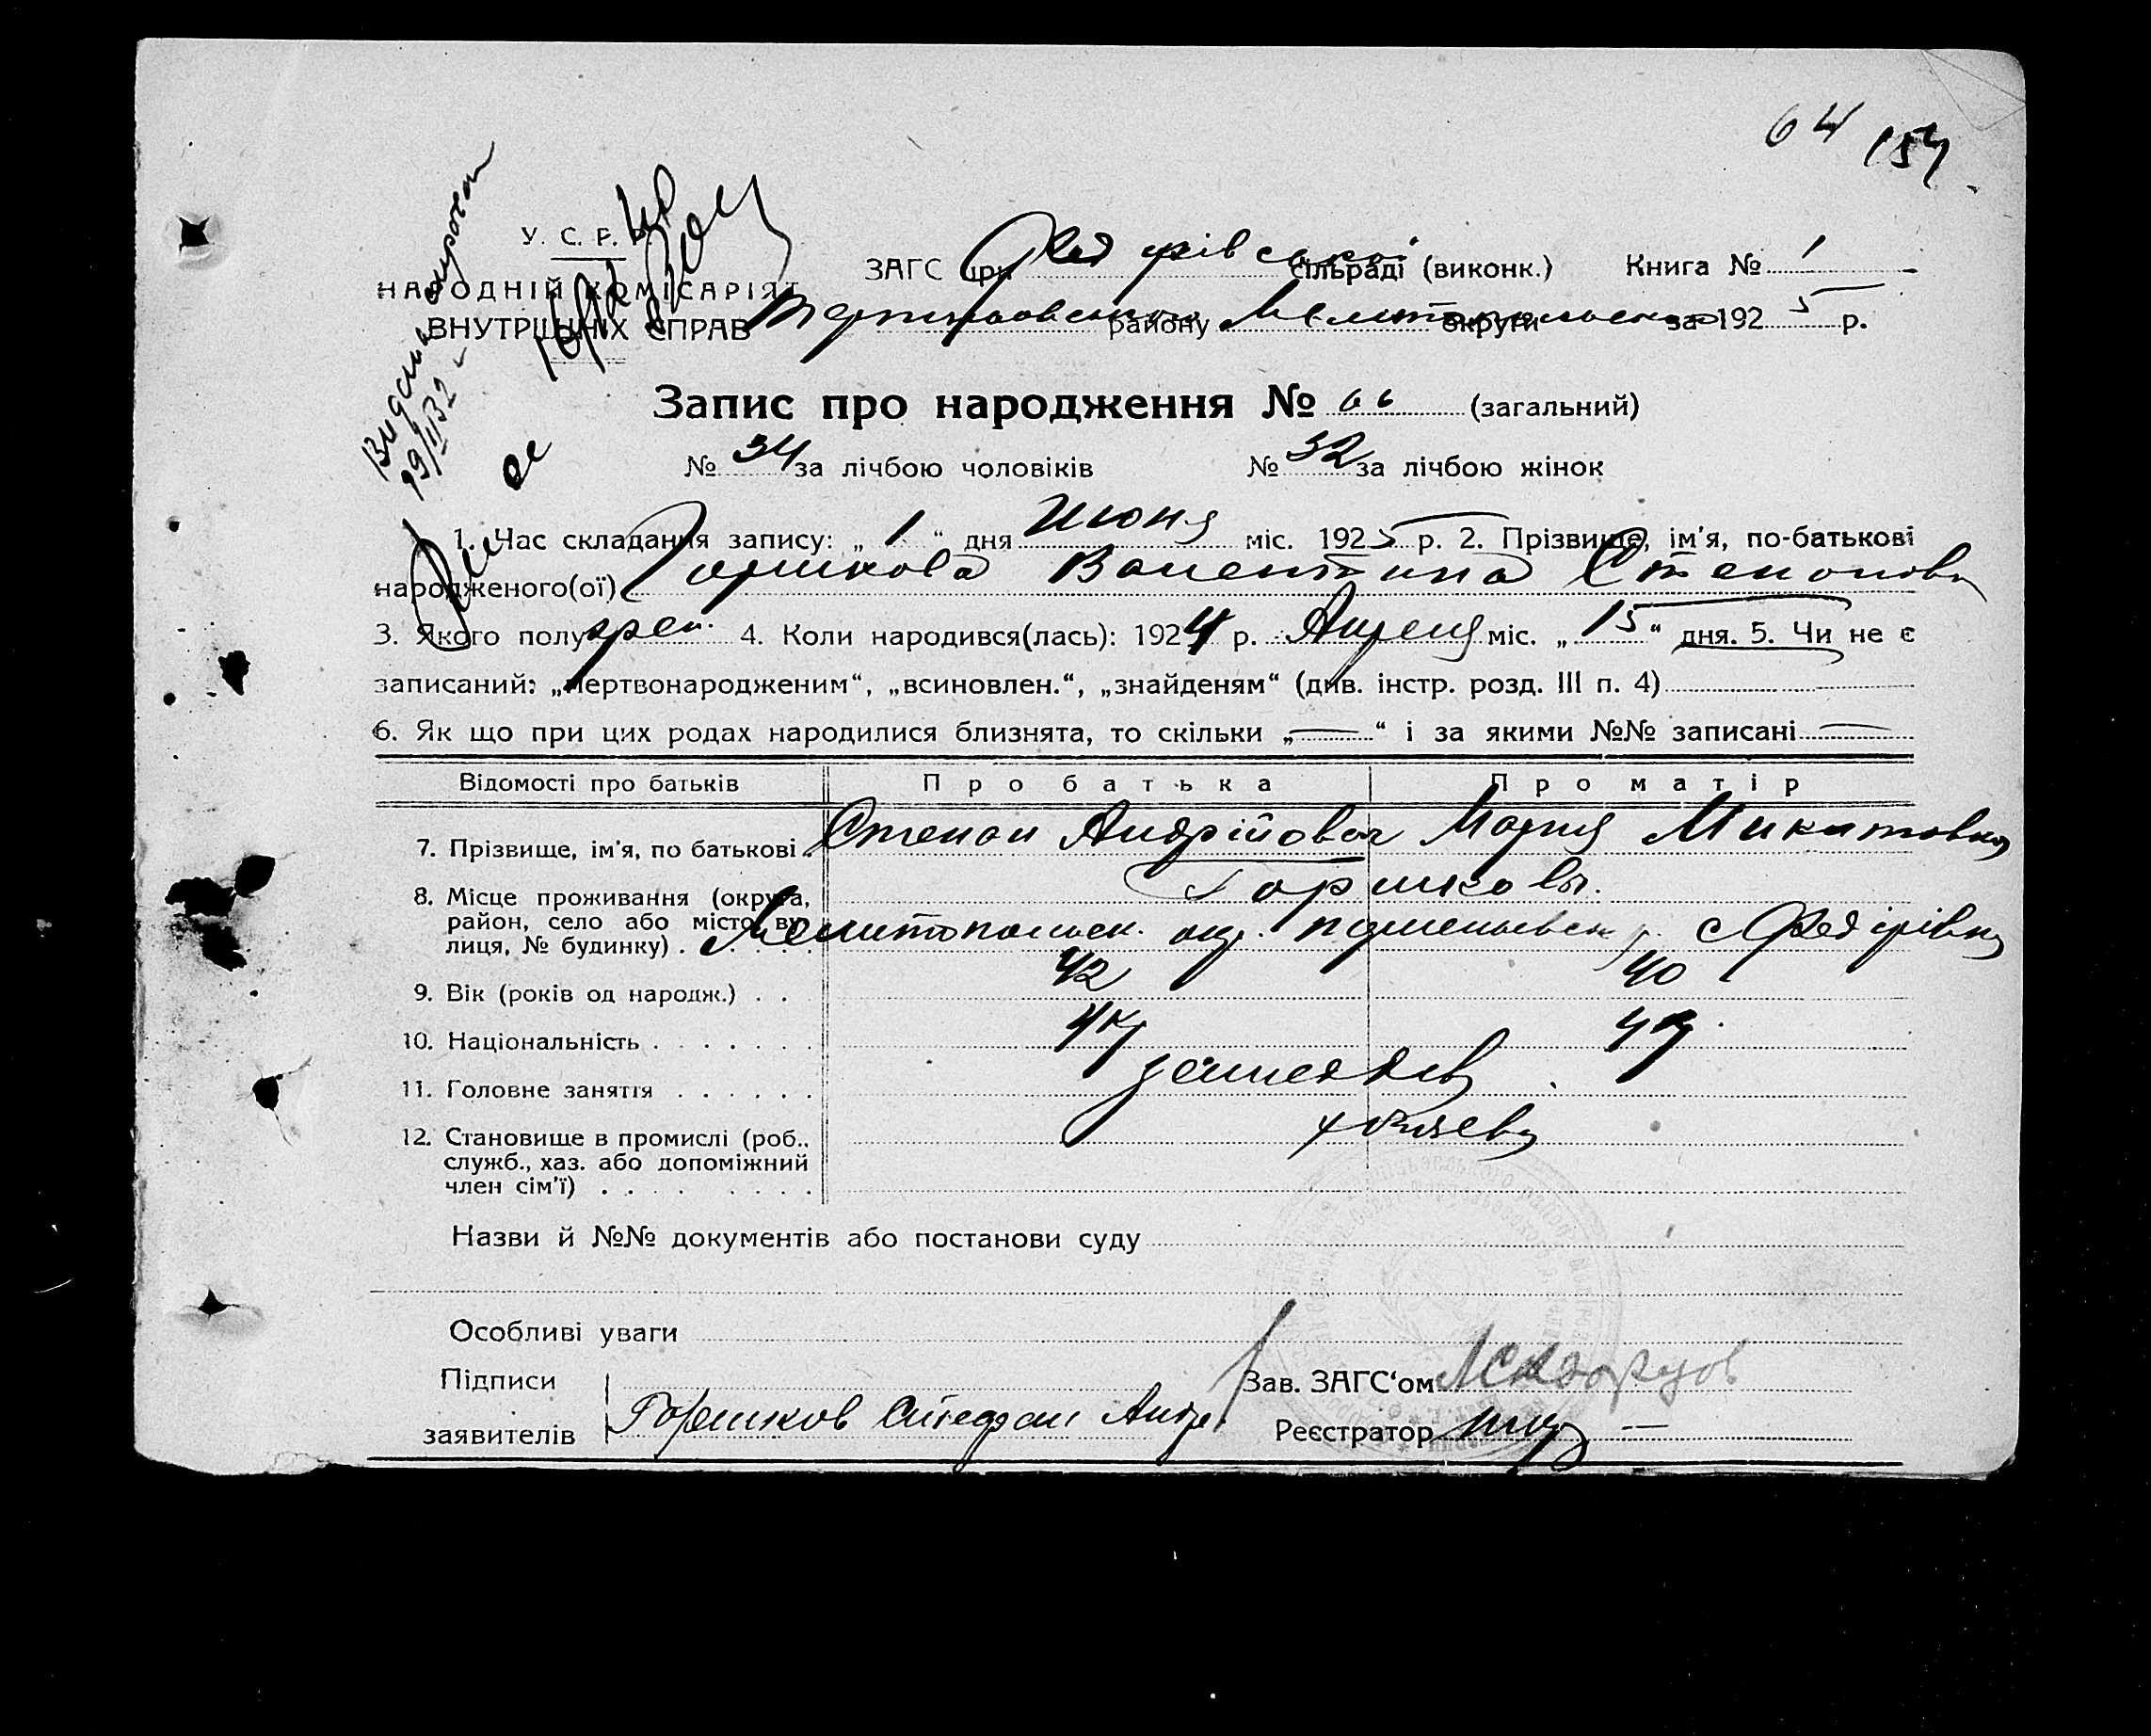 64 154
У. С. Р. Р.
НАРОДНІЙ КОМІСАРІЯТ
ВНУТРІШНІХ СПРАВ
Видана
ЗАГС при Федорівській сільраді (виконк.) Книга № 1
району Мелитопольської округи за 1925 р.
Запис про народження № 66 (загальний)
№ 34 за лічбою чоловіків № 32 за лічбою жінок
1. Час складання запису: „ 1 “ дня Июня міс. 1925 р. 2. Прізвище, ім'я, по-батькові
народженого(ої) Горшкова Валентина Степановн
3. Якого полу 4. Коли народився(лась): 1924 р. Апреля міс. „ 15 “ дня. 5. Чи не є
записаний: „мертвонародженим“, „всиновлен.“, „знайденям“ (див. інстр. розд. III п. 4)
6. Як що при цих родах народилися близнята, то скільки „ — “ і за якими №№ записані —
Відомості про батьків Про батька Про матір
7. Прізвище, ім'я, по батькові Степан Андрійович Мария Микитовна
Горшковы.
8. Місце проживання (округа,
район, село або місто, ву-
лиця, № будинку) Мелитопольск. окр. с Федірівка
9. Вік (років од народж.) 42 40
10. Національність Укр Укр
11. Головне заняття
12. Становище в промислі (роб.,
служб., хаз. або допоміжний
член сім'ї)
Назви й №№ документів або постанови суду
Особливі уваги
Підписи
заявителів Горшков Стефан Андр
Зав. ЗАГС‘ом
Реєстратор